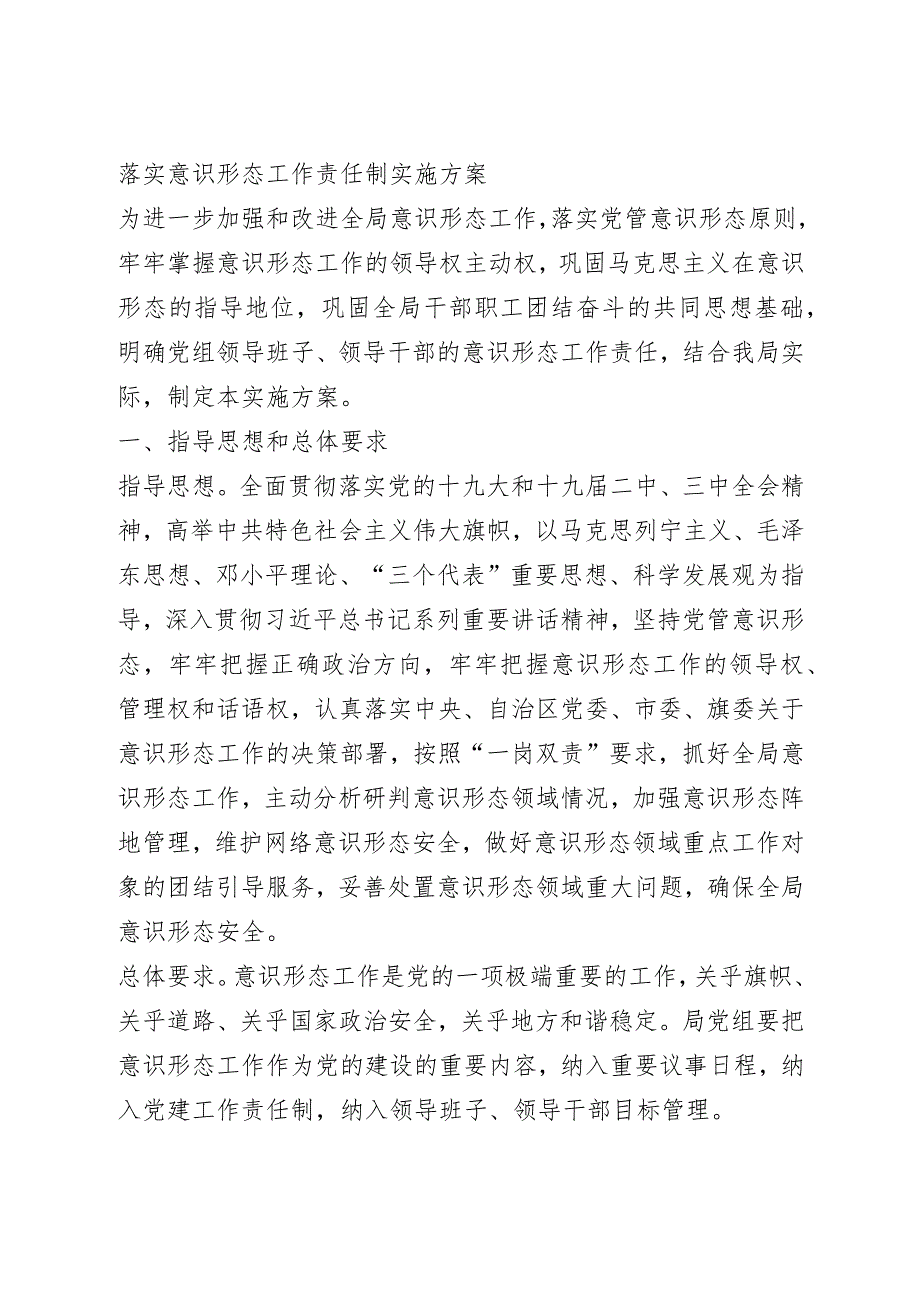 落实意识形态工作责任制实施方案
为进一步加强和改进全局意识形态工作，落实党管意识形态原则，
牢牢掌握意识形态工作的领导权主动权，巩固马克思主义在意识
形态的指导地位，巩固全局干部职工团结奋斗的共同思想基础，
明确党组领导班子、领导干部的意识形态工作责任，结合我局实
际，制定本实施方案。
一、指导思想和总体要求
指导思想。全面贯彻落实党的十九大和十九届二中、三中全会精
神，高举中共特色社会主义伟大旗帜，以马克思列宁主义、毛泽
东思想、邓小平理论、“三个代表”重要思想、科学发展观为指
导，深入贯彻习近平总书记系列重要讲话精神，坚持党管意识形
态，牢牢把握正确政治方向，牢牢把握意识形态工作的领导权、
管理权和话语权，认真落实中央、自治区党委、市委、旗委关于
意识形态工作的决策部署，按照“一岗双责”要求，抓好全局意
识形态工作，主动分析研判意识形态领域情况，加强意识形态阵
地管理，维护网络意识形态安全，做好意识形态领域重点工作对
象的团结引导服务，妥善处置意识形态领域重大问题，确保全局
意识形态安全。
总体要求。意识形态工作是党的一项极端重要的工作，关乎旗帜、
关乎道路、关乎国家政治安全，关乎地方和谐稳定。局党组要把
意识形态工作作为党的建设的重要内容，纳入重要议事日程，纳
入党建工作责任制，纳入领导班子、领导干部目标管理。